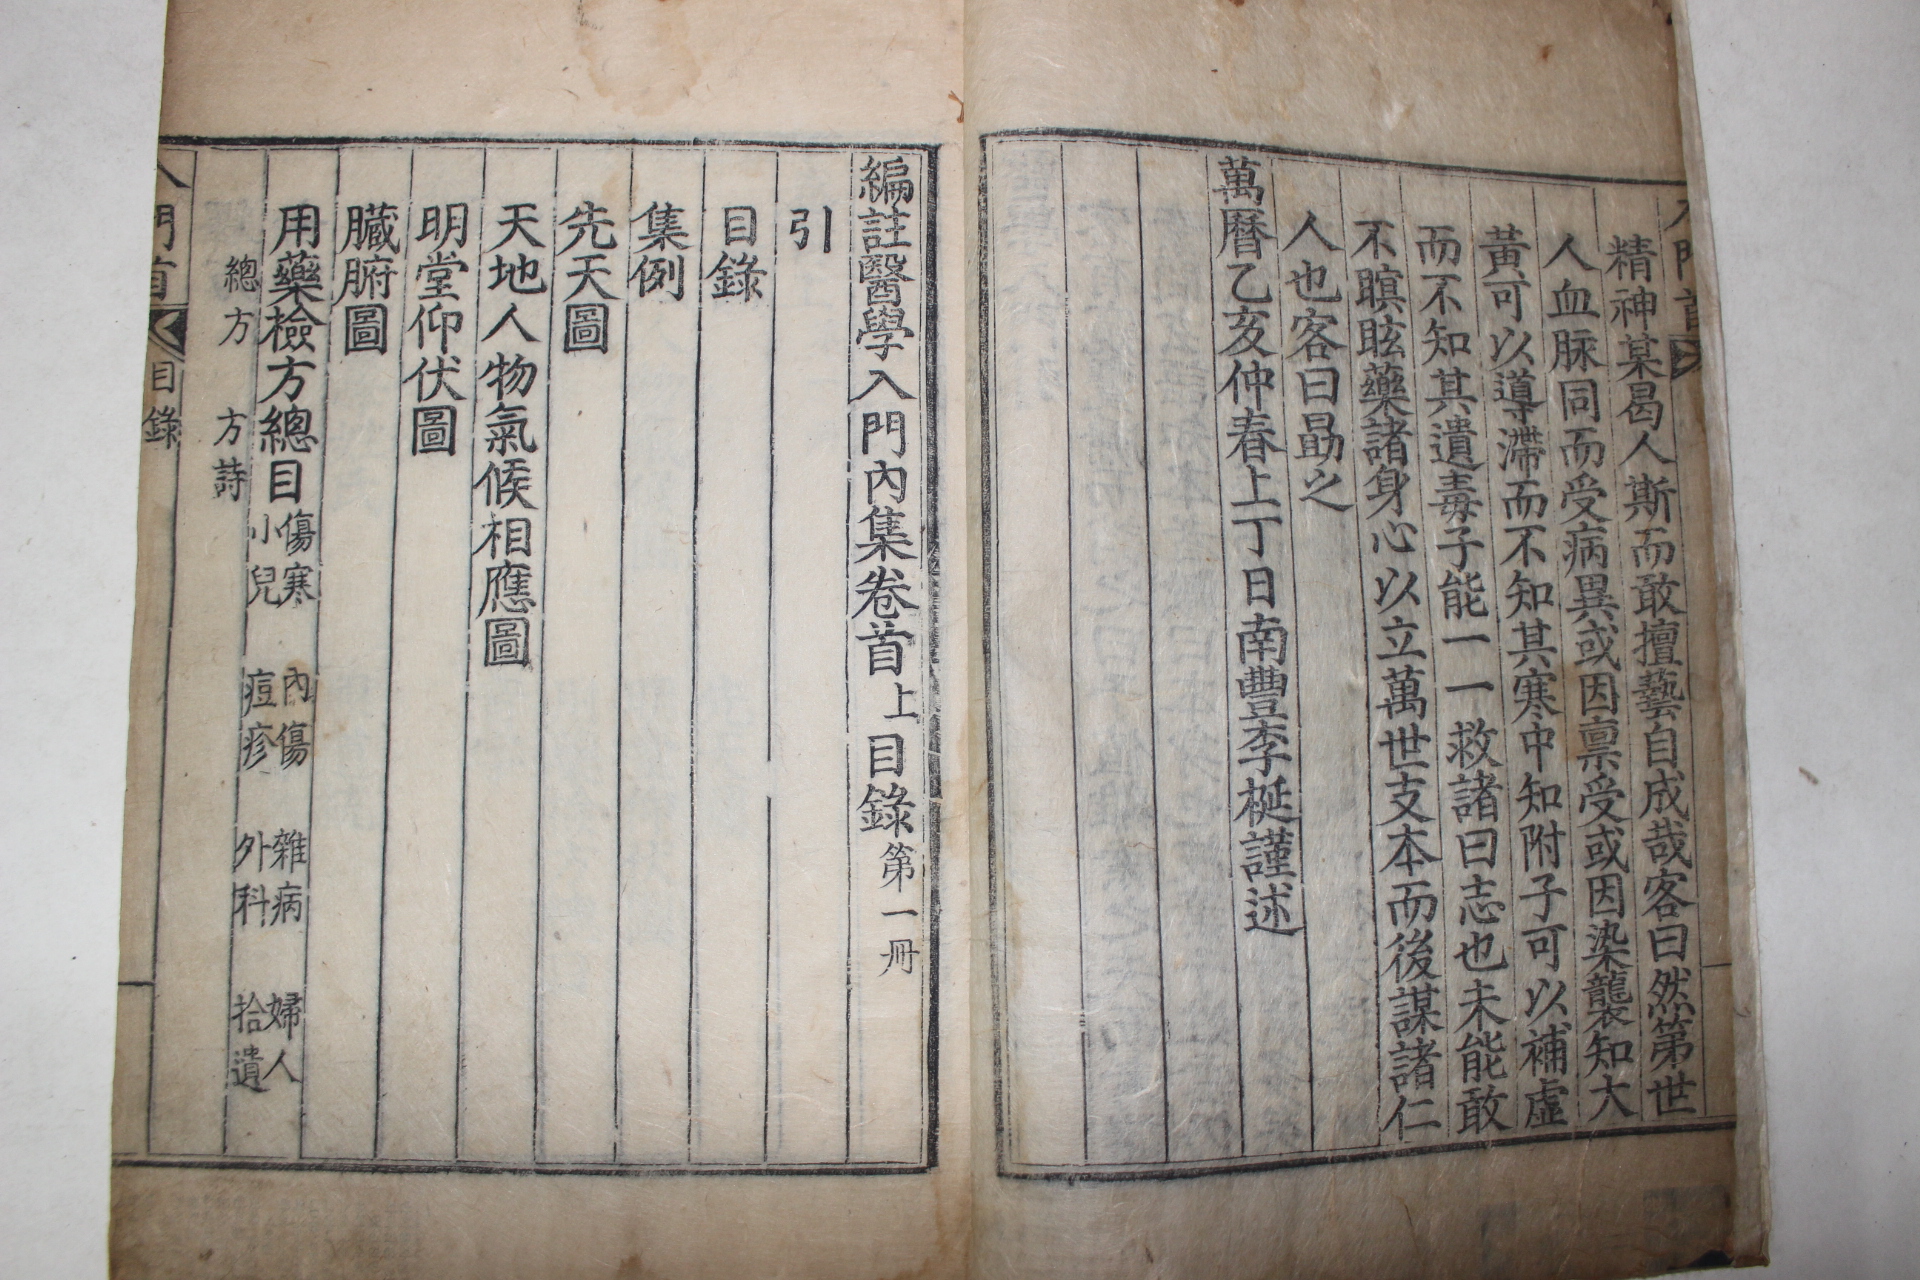 精神某曷人斯而敢擅藝自成哉客曰然第世
人血脉同而受病異或因禀受或因染襲知大
黃可以導滯而不知其寒中知附子可以補虛
而不知其遺毒子能一一救諸曰志也未能敢
不瞑眩藥諸身心以立萬世支本而後謀諸仁
人也客曰勗之
萬曆乙亥仲春上丁日南豐李梴謹述
編註醫學入門內集卷首上目錄第一冊
引
目錄
集例
先天圖
天地人物氣候相應圖
明堂仰伏圖
臟腑圖
用藥檢方總目傷寒 內傷 雜病 婦人
小兒 痘疹 外科 拾遺
總方 方詩
入門首 目錄